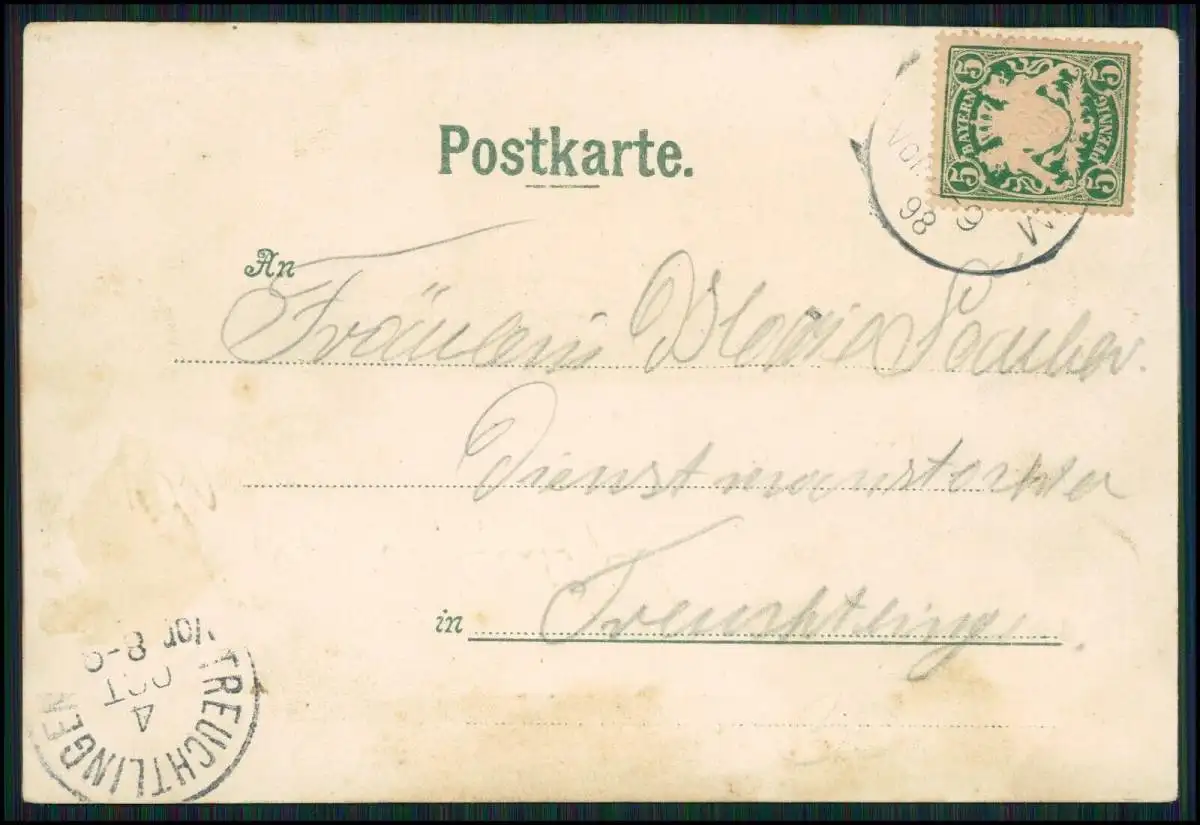 Postkarte.
5 5
BAYERN
PFENNIG
5 5
VOR
98
M
An
Fräulein Maria
Dienstmanstochter
in Treuchtlingen
TREUCHTLINGEN
4
OCT
Vor 8-9